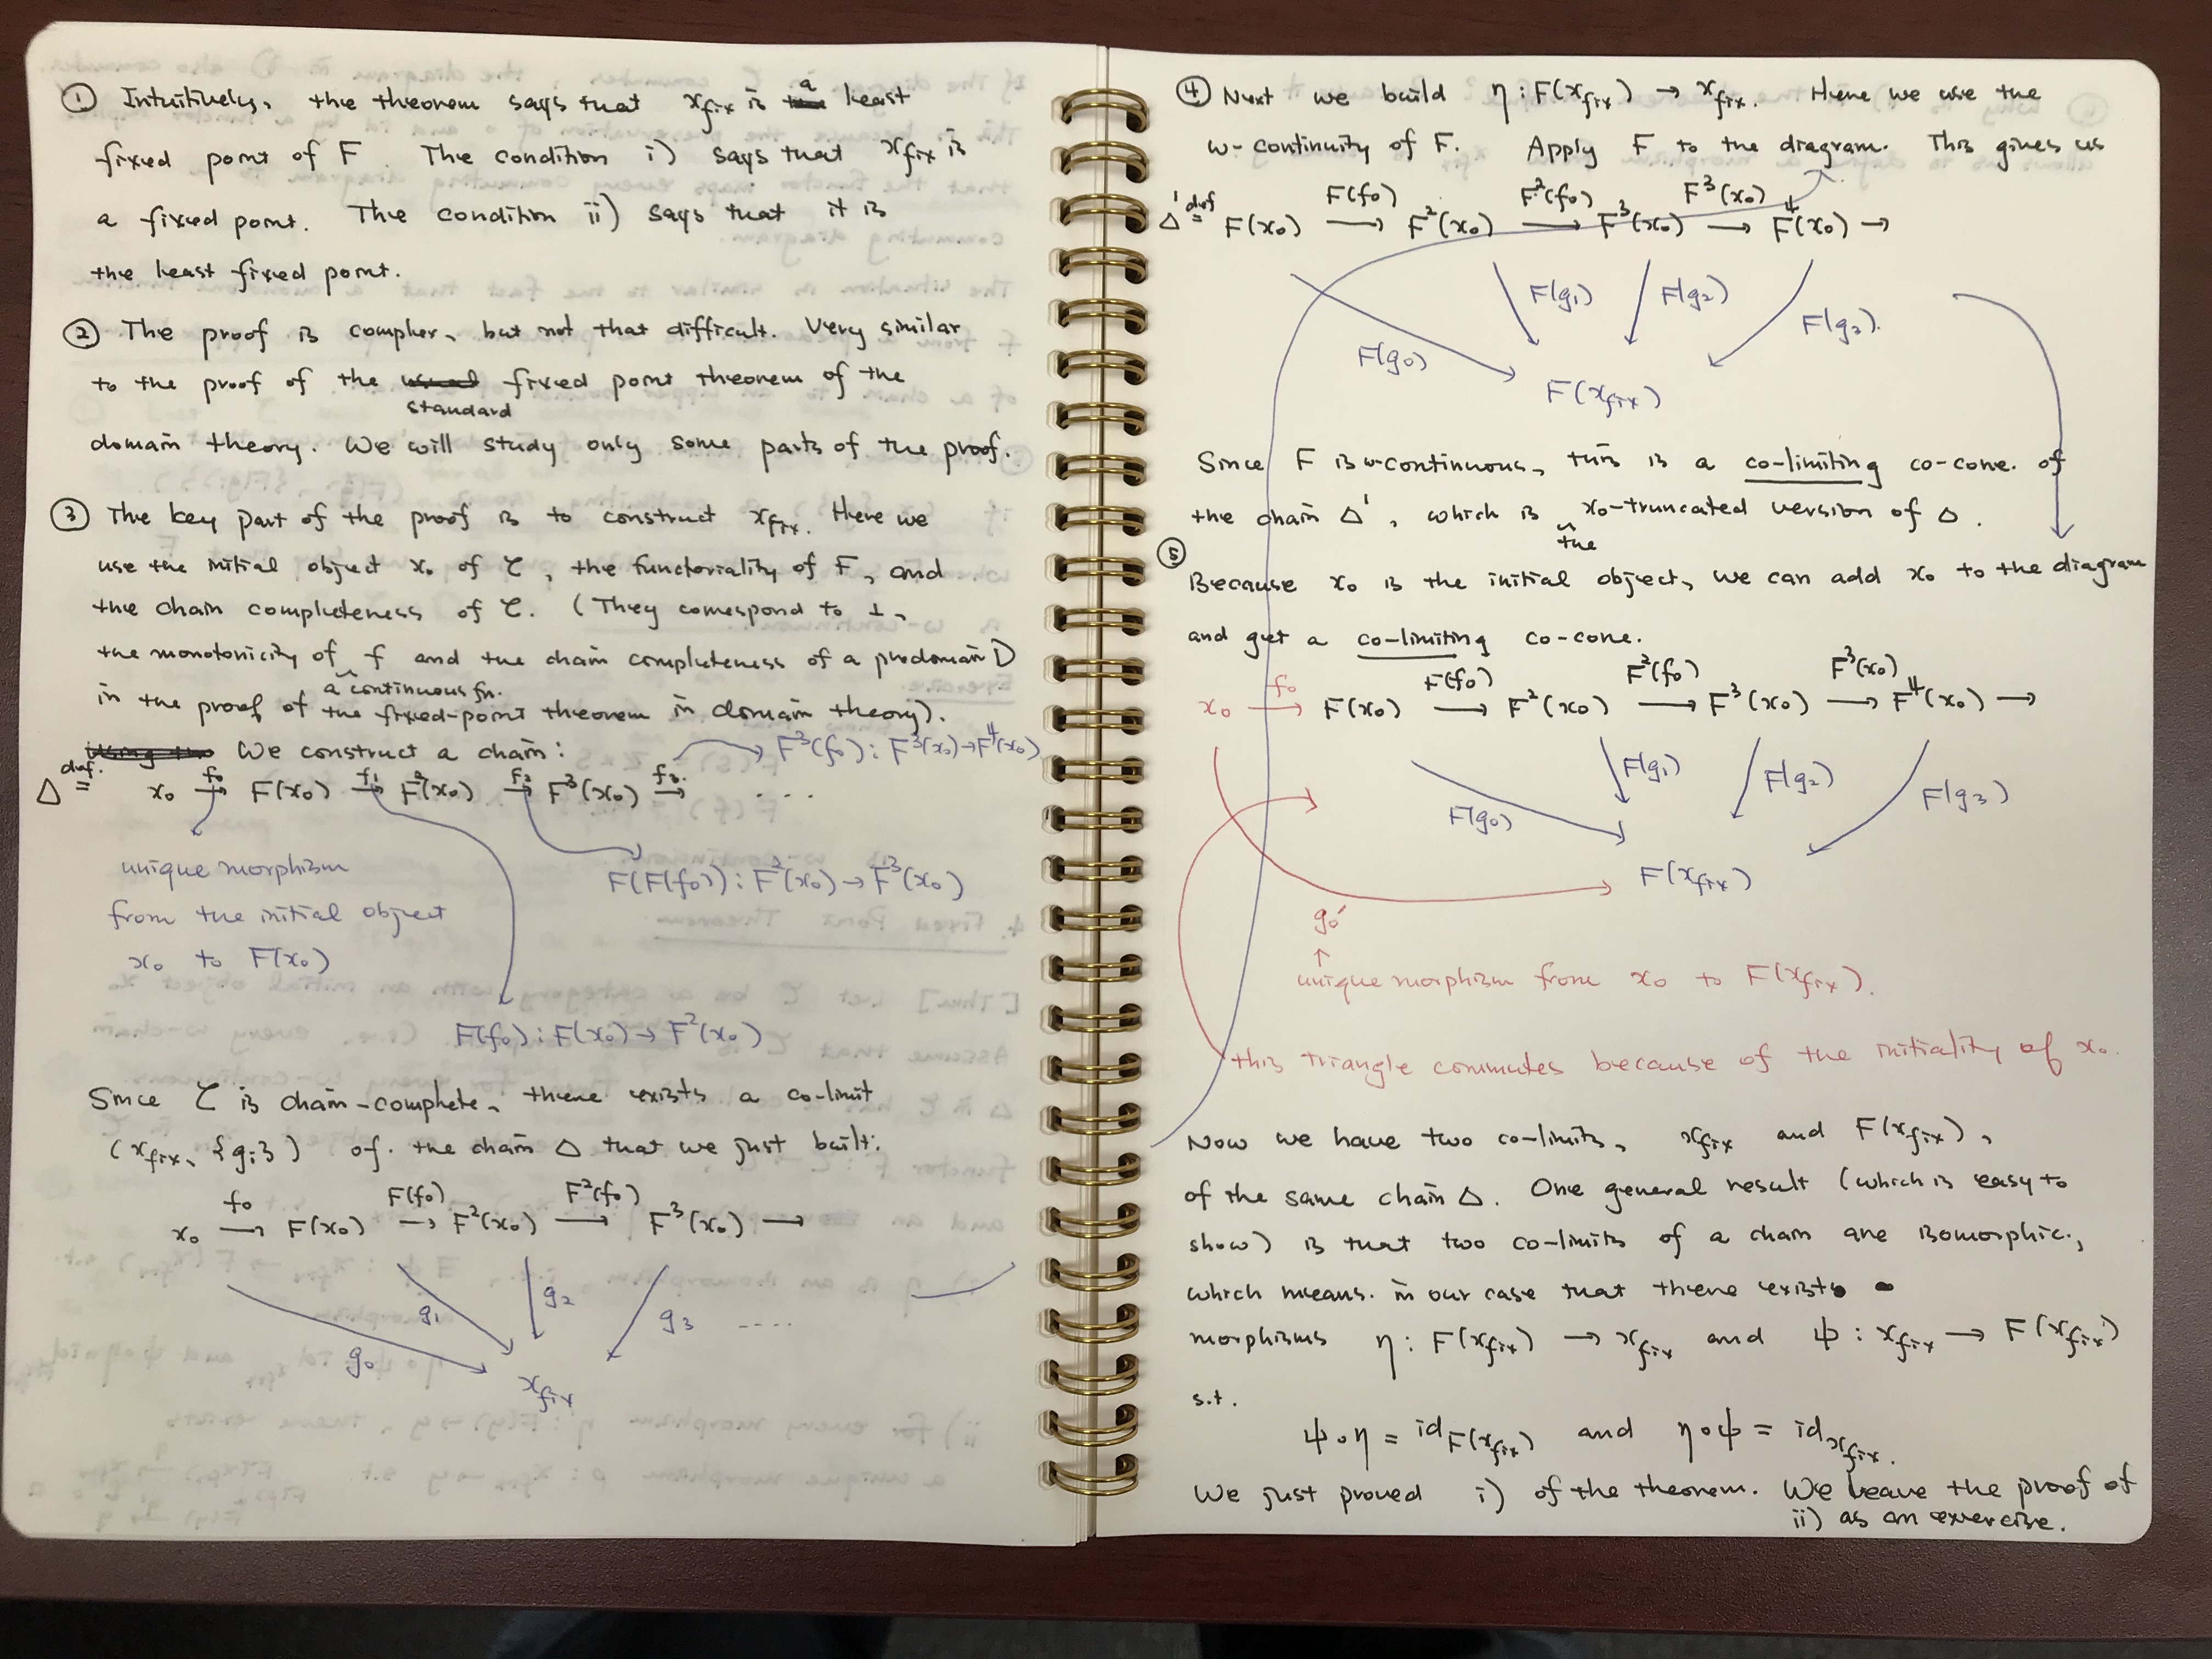 ① Intuitively, the theorem says that x_fix is a least
fixed point of F. The condition i) says that x_fix is
a fixed point. The condition ii) says that it is
the least fixed point.
② The proof is complex, but not that difficult. Very similar
to the proof of the standard fixed point theorem of the
domain theory. We will study only some parts of the proof.
③ The key part of the proof is to construct x_fix. Here we
use the initial object x₀ of C, the functoriality of F, and
the chain completeness of C. (They correspond to ⊥,
the monotonicity of f and the chain completeness of a predomain D
a continuous fn.
in the proof of the fixed-point theorem in domain theory).
We construct a chain:
F³(f₀) : F³(x₀) → F⁴(x₀)
Δ def.= x₀ →f₀ F(x₀) →f₁ F²(x₀) →f₂ F³(x₀) →f₃ ....
unique morphism
from the initial object
x₀ to F(x₀)
F(F(f₀)) : F²(x₀) → F³(x₀)
F(f₀) : F(x₀) → F²(x₀)
Since C is chain-complete, there exists a co-limit
(x_fix, {g_i}) of the chain Δ that we just built:
f₀ F(f₀) F²(f₀)
x₀ → F(x₀) → F²(x₀) → F³(x₀) →
g₀ g₁ g₂ g₃ ....
x_fix
④ Next we build η : F(x_fix) → x_fix. Here we use the
ω-continuity of F. Apply F to the diagram. This gives us
F(f₀) F²(f₀) F³(x₀)
Δ' def= F(x₀) → F²(x₀) → F³(x₀) → F⁴(x₀) →
F(g₀) F(g₁) F(g₂) F(g₃).
F(x_fix)
Since F is ω-continuous, this is a co-limiting co-cone of
the chain Δ', which is the x₀-truncated version of Δ.
⑤
Because x₀ is the initial object, we can add x₀ to the diagram
and get a co-limiting co-cone.
f₀ F(f₀) F²(f₀) F³(x₀)
x₀ → F(x₀) → F²(x₀) → F³(x₀) → F⁴(x₀) →
F(g₀) F(g₁) F(g₂) F(g₃)
F(x_fix)
g₀'
↑
unique morphism from x₀ to F(x_fix).
this triangle commutes because of the initiality of x₀.
Now we have two co-limits, x_fix and F(x_fix),
of the same chain Δ. One general result (which is easy to
show) is that two co-limits of a chain are isomorphic,
which means in our case that there exists
morphisms η : F(x_fix) → x_fix and ψ : x_fix → F(x_fix)
s.t.
ψ∘η = id_F(x_fix) and η∘ψ = id_x_fix.
We just proved i) of the theorem. We leave the proof of
ii) as an exercise.